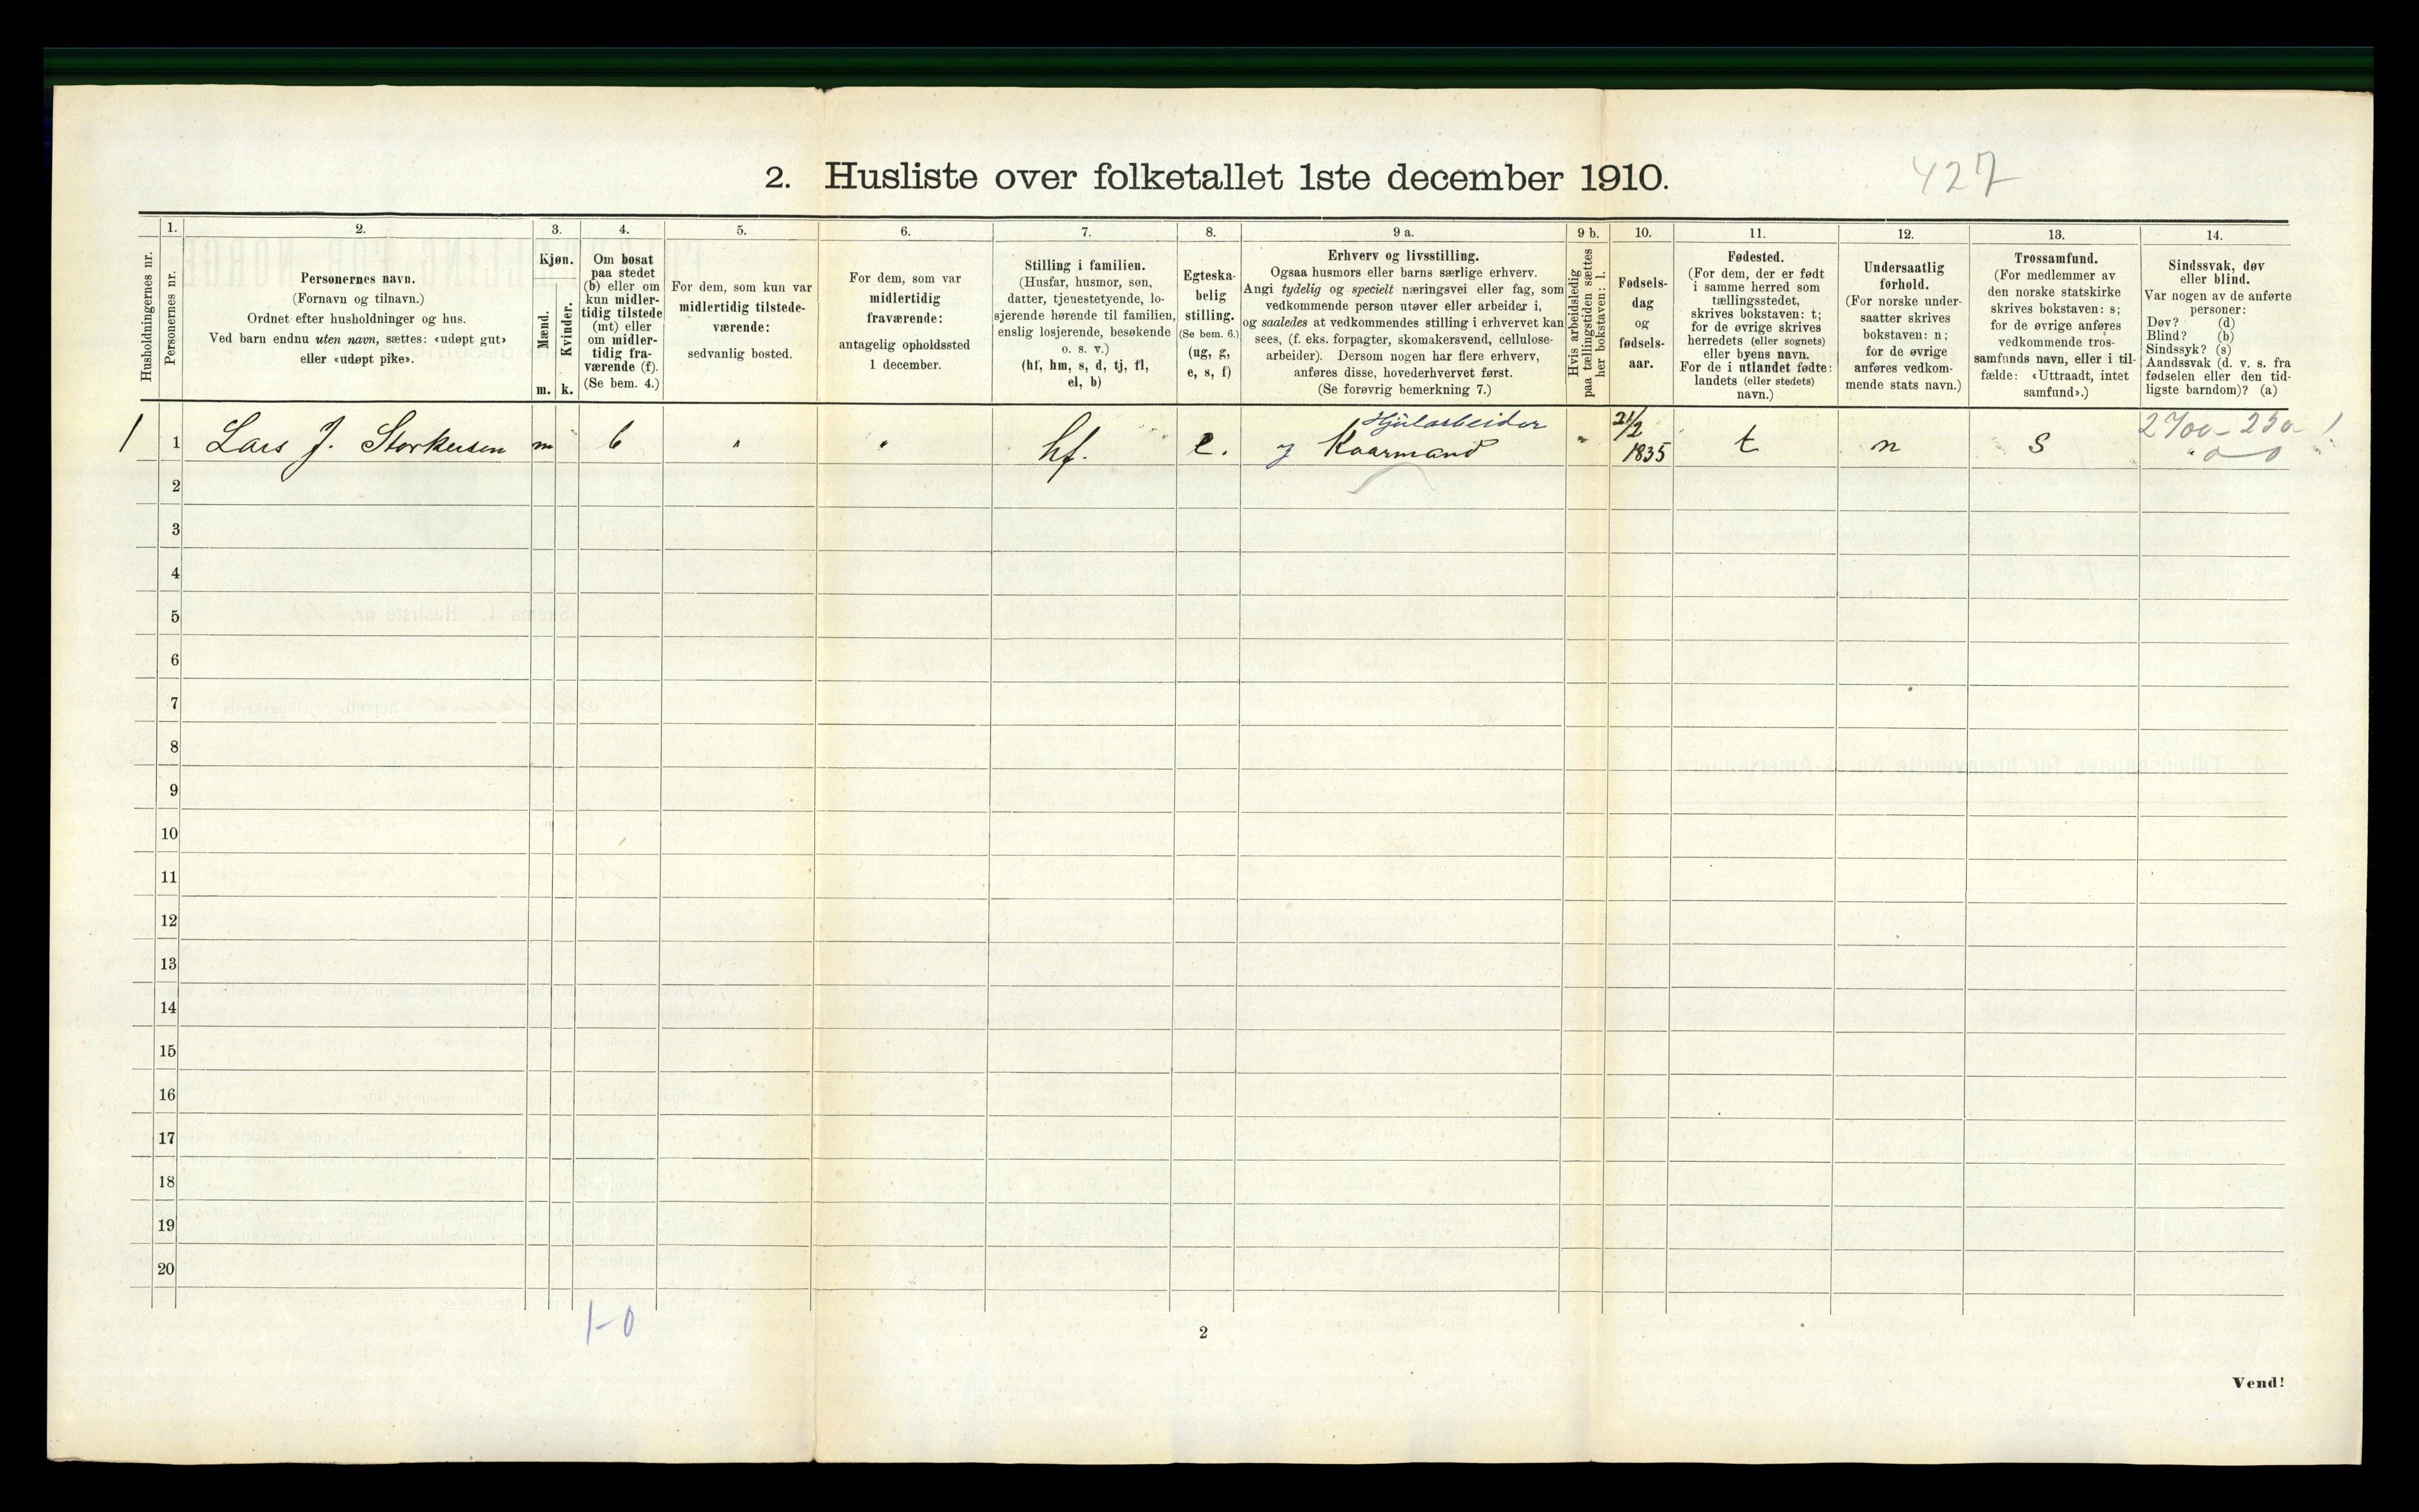 2. Husliste over folketallet 1ste december 1910.
427
Husholdningernes nr.
1.
Personernes nr.
2.
Personernes navn.
(Fornavn og tilnavn.)
Ordnet efter husholdninger og hus.
Ved barn endnu uten navn, sættes: «udøpt gut»
eller «udøpt pike».
3.
Kjøn.
Mænd.
Kvinder.
m. k.
4.
Om bosat
paa stedet
(b) eller om
kun midler-
tidig tilstede
(mt) eller
om midler-
tidig fra-
værende (f).
(Se bem. 4.)
5.
For dem, som kun var
midlertidig tilstede-
værende:
sedvanlig bosted.
6.
For dem, som var
midlertidig
fraværende:
antagelig opholdssted
1 december.
7.
Stilling i familien.
(Husfar, husmor, søn,
datter, tjenestetyende, lo-
sjerende hørende til familien,
enslig losjerende, besøkende
o. s. v.)
(hf, hm, s, d, tj, fl,
el, b)
8.
Egteska-
belig
stilling.
(Se bem. 6.)
(ug, g,
e, s, f)
9 a.
Erhverv og livsstilling.
Ogsaa husmors eller barns særlige erhverv.
Angi tydelig og specielt næringsvei eller fag, som
vedkommende person utøver eller arbeider i,
og saaledes at vedkommendes stilling i erhvervet kan
sees, (f. eks. forpagter, skomakersvend, cellulose-
arbeider). Dersom nogen har flere erhverv,
anføres disse, hovederhvervet først.
(Se forøvrig bemerkning 7.)
9 b.
Hvis arbeidsledig
paa tællingstiden sættes
her bokstaven: l.
10.
Fødsels-
dag
og
fødsels-
aar.
11.
Fødested.
(For dem, der er født
i samme herred som
tællingsstedet,
skrives bokstaven: t;
for de øvrige skrives
herredets (eller sognets)
eller byens navn.
For de i utlandet fødte:
landets (eller stedets)
navn.)
12.
Undersaatlig
forhold.
(For norske under-
saatter skrives
bokstaven: n;
for de øvrige
anføres vedkom-
mende stats navn.)
13.
Trossamfund.
(For medlemmer av
den norske statskirke
skrives bokstaven: s;
for de øvrige anføres
vedkommende tros-
samfunds navn, eller i til-
fælde: «Uttraadt, intet
samfund».)
14.
Sindssvak, døv
eller blind.
Var nogen av de anførte
personer:
Døv? (d)
Blind? (b)
Sindssyk? (s)
Aandssvak (d. v. s. fra
fødselen eller den tid-
ligste barndom)? (a)
Hjularbeider
1 1 Lars J. Storkersen m b " " hf. e. Kaarmand " 21/2 1835 t n s
2700 - 250 - 1
" 0 - 0
2
3
4
5
6
7
8
9
10
11
12
13
14
15
16
17
18
19
20
1-0
2
Vend!